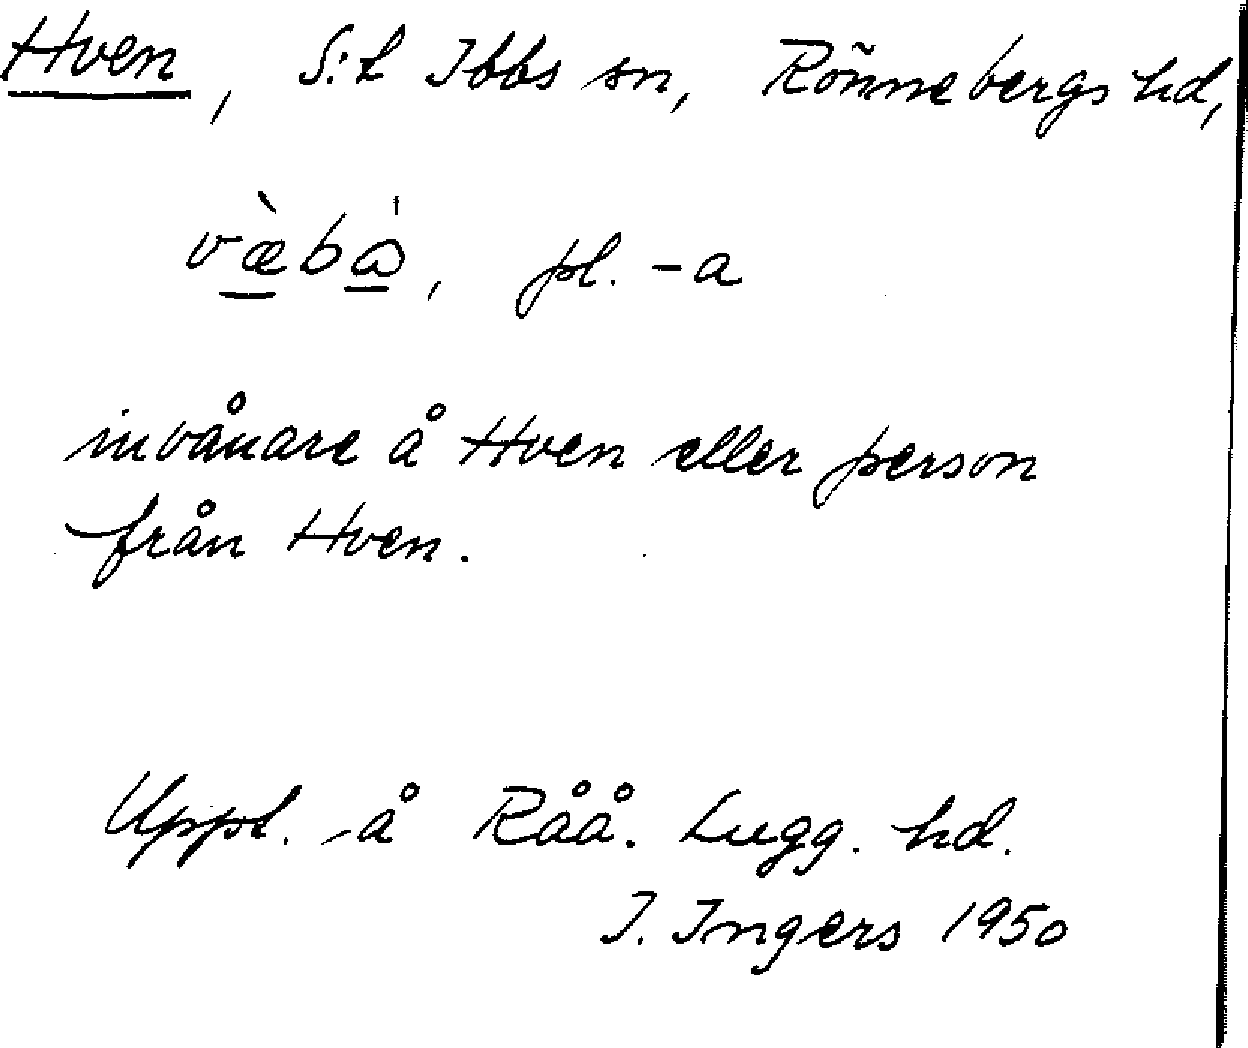 Hven, S:t Ibbs sn, Rönnebergs hd,
væ̀bɷ̀, pl. -a
invånare å Hven eller person
från Hven.
Uppt. å Råå. Lugg. hd.
I. Ingers 1950